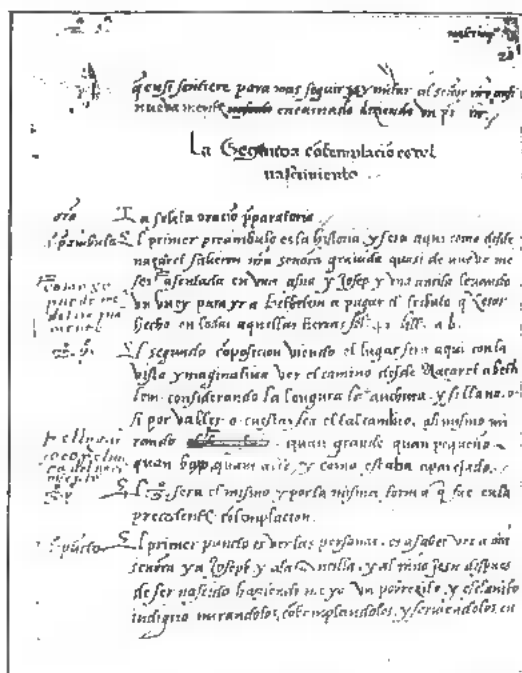 q̃ ensi sentiere para mas seguir y ymitar al señor nr̃o ansi
nuevamente encarnado diziendo un pr̃ nr̃
La Segunda cõtemplaciõ es del
nascimiento
orõ La solita oraciõ p̃paratoria
El primer preambulo es la historia y sera aqui como desde
nazaret salieron nr̃a señora gravida quasi de nueve me
ses asentada en una asna y Josep y una ancila levando
un buey para yr a bethelem a pagar el tributo q̃ cesar
hecho en todas aquellas tierras
El segundo cõposicion viendo el lugar sera aqui con la
vista ymaginativa ver el camino desde Nazaret a beth
lem considerando la longura la anchura y si llano o
si por valles o cuestas sea el tal camino, asi mismo mi
rando quan grande quan pequeño
quan baxo quan alto, y como estaba aparejado
El 3º sera el mismo y por la misma forma q̃ fue en la
precedente cõtemplacion
1 pũcto El primer puncto es ver las personas, es a saber ver a nr̃a
señora y a Joseph y a la ancilla, y al niño jesu despues
de ser nascido haziendo me yo un pobrezito y esclavito
indigno mirandolos, cõtemplandolos, y serviendolos en